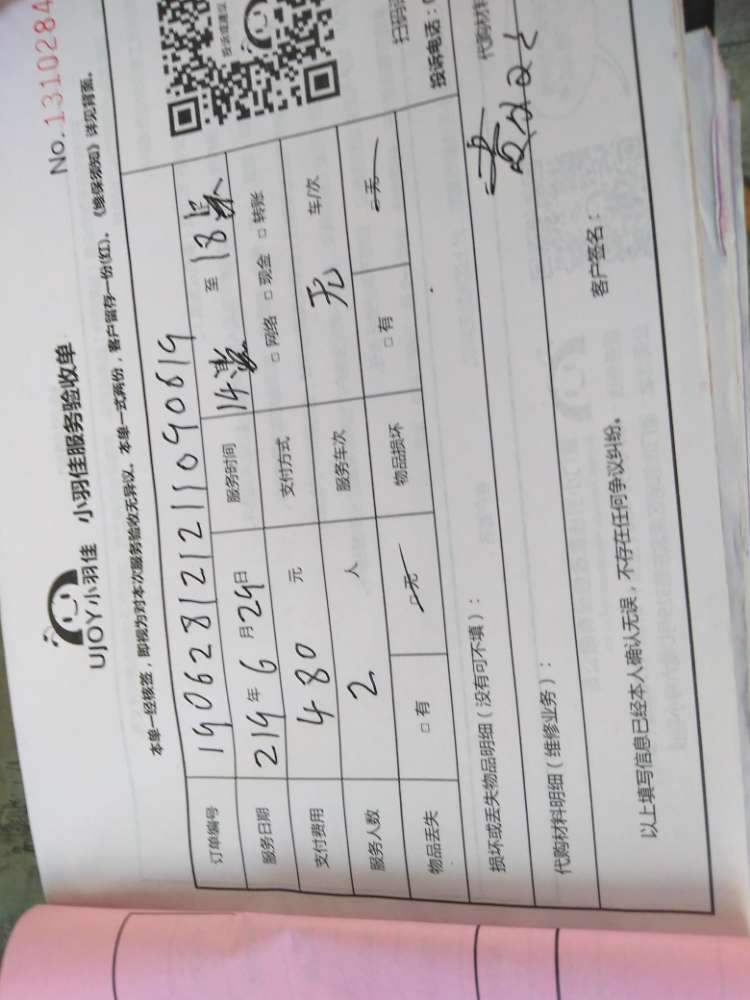 No.1310284
UJOY小羽佳 小羽佳服务验收单
本单一经核签，即视为对本次服务验收无异议。本单一式两份，客户留存一份(红)。《维保须知》详见背面。
订单编号 190628121211090819
服务日期 219年6月29日 服务时间 14 至 18
支付费用 480 元 支付方式 □ 网络 □ 现金 □ 转账
服务人数 2 人 服务车次 无 车/次
物品丢失 □ 有 □ 无 物品损坏 □ 有 □ 无
损坏或丢失物品明细（没有可不填）：
代购材料明细（维修业务）： 代购材料
以上填写信息已经本人确认无误，不存在任何争议纠纷。 客户签名：
投诉电话：0